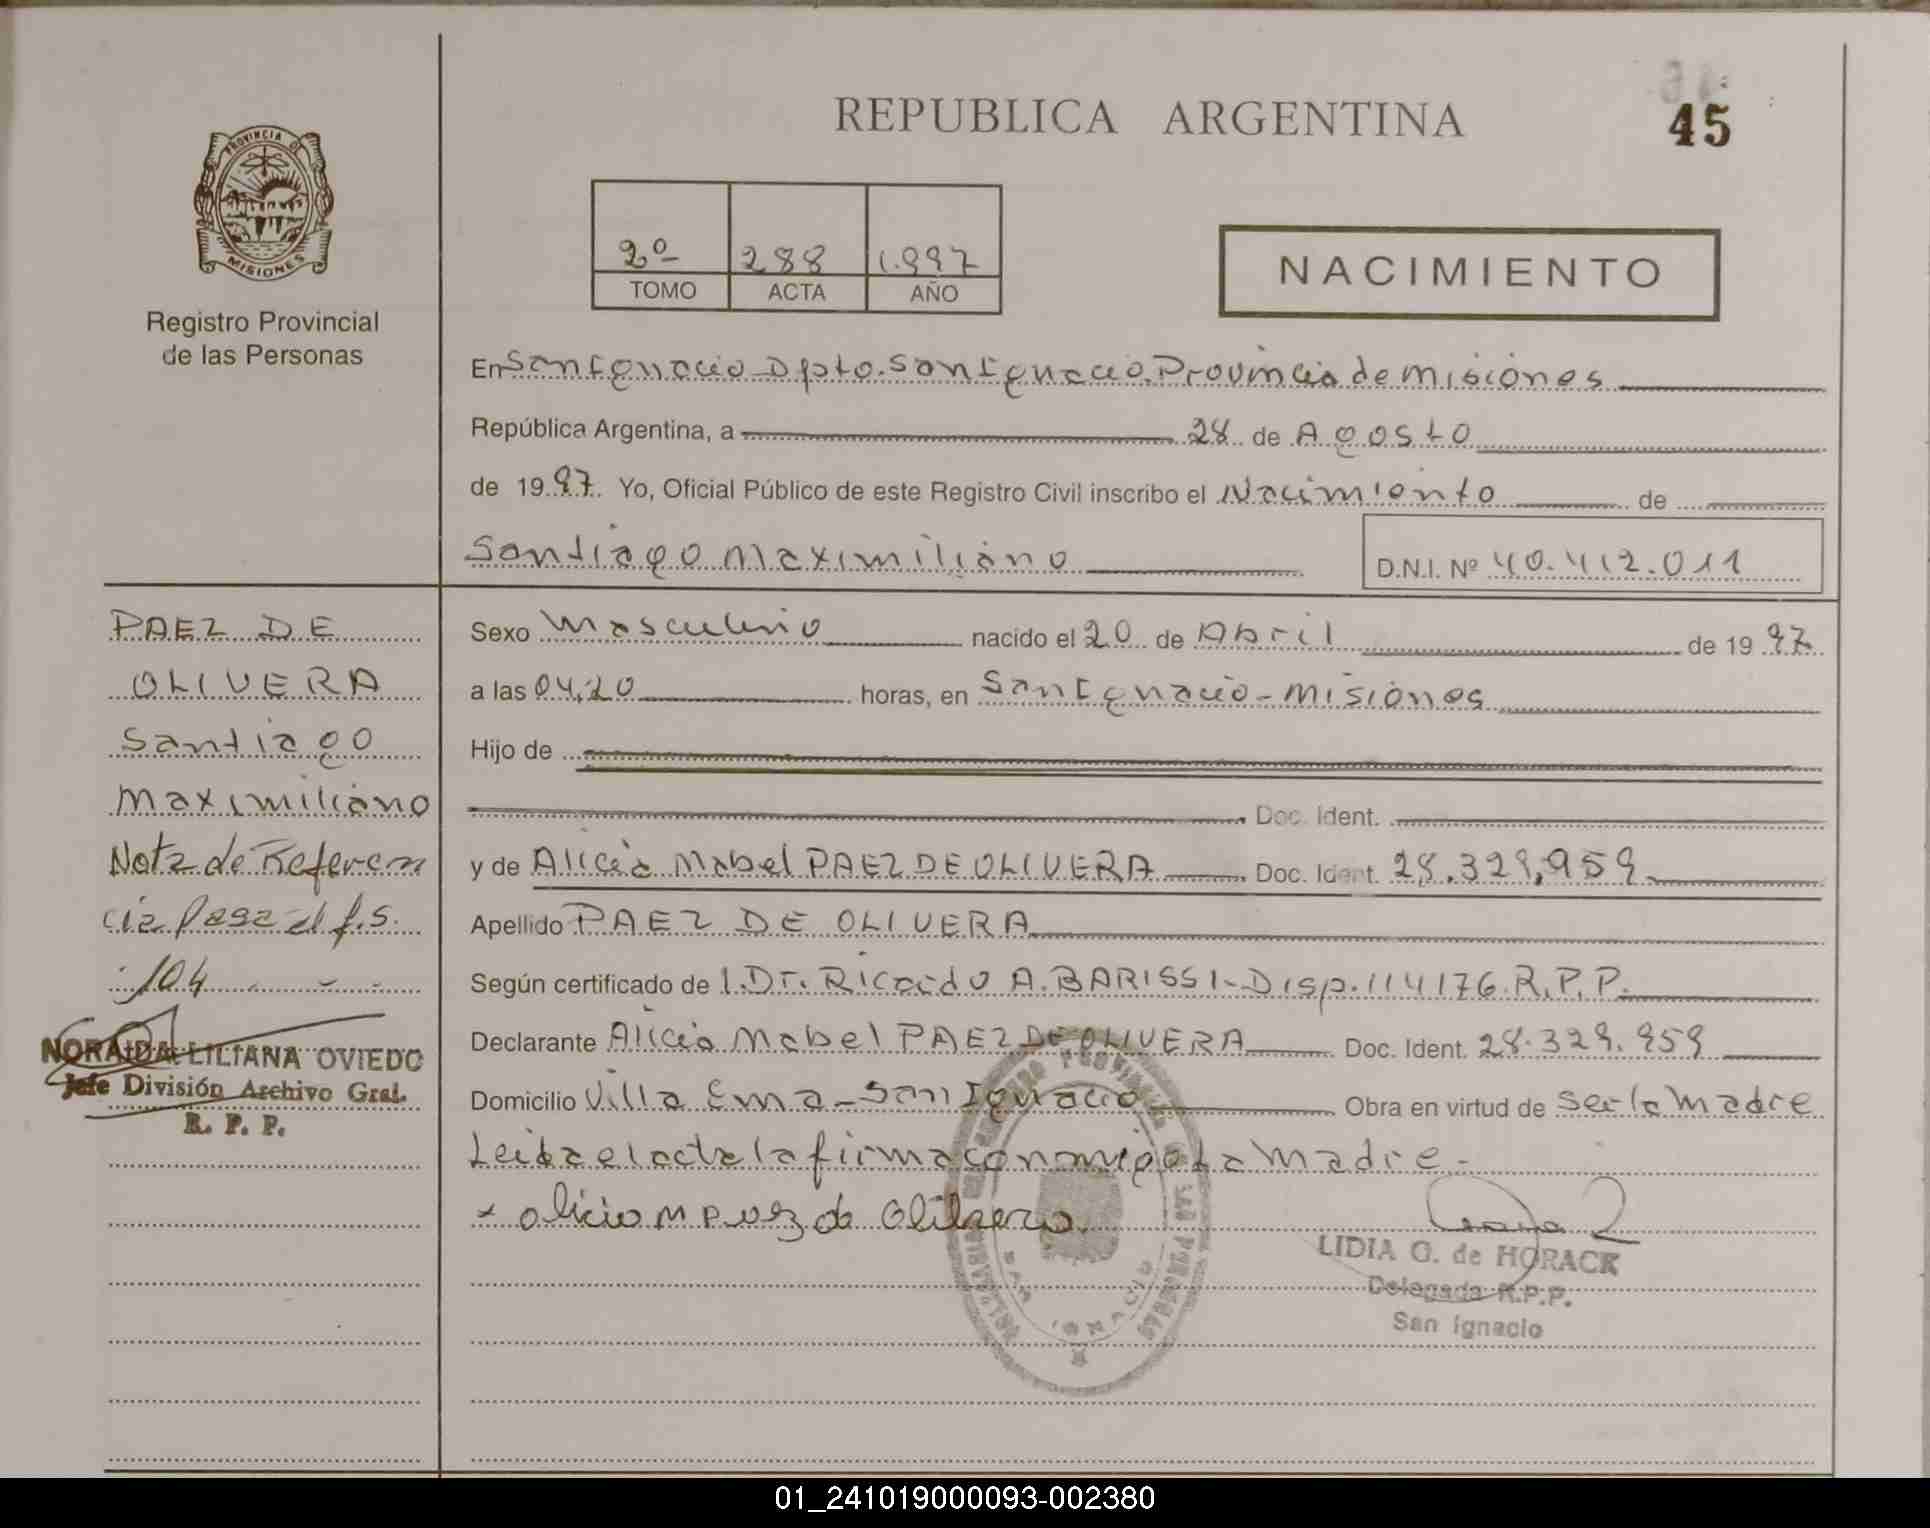 REPUBLICA ARGENTINA
45
PROVINCIA DE
MISIONES
Registro Provincial
de las Personas
2º 288 1.997
TOMO ACTA AÑO
NACIMIENTO
En San Ignacio Dpto. San Ignacio. Provincia de Misiones
República Argentina, a 28 de Agosto
de 1997. Yo, Oficial Público de este Registro Civil inscribo el Nacimiento de
Santiago Maximiliano
D.N.I. Nº 40.412.011
PAEZ DE
OLIVERA
Santiago
Maximiliano
Nota de Referen
cia Pasa al f.s.
104
NORAIDA LILIANA OVIEDO
Jefe División Archivo Gral.
R. P. P.
Sexo Masculino nacido el 20 de Abril de 1997
a las 04,20 horas, en San Ignacio - Misiones
Hijo de
Doc. Ident.
y de Alicia Mabel PAEZ DE OLIVERA Doc. Ident. 28.329,959
Apellido PAEZ DE OLIVERA
Según certificado de 1. Dr. Ricardo A. BARISSI - Disp. 114176. R.P.P.
Declarante Alicia Mabel PAEZ DE OLIVERA Doc. Ident. 28.329.959
Domicilio Villa Ema - San Ignacio Obra en virtud de ser la Madre
Leida el acta la firma conmigo La Madre.-
LIDIA G. de HORACK
Delegada R.P.P.
San Ignacio
SAN IGNACIO
01_241019000093-002380